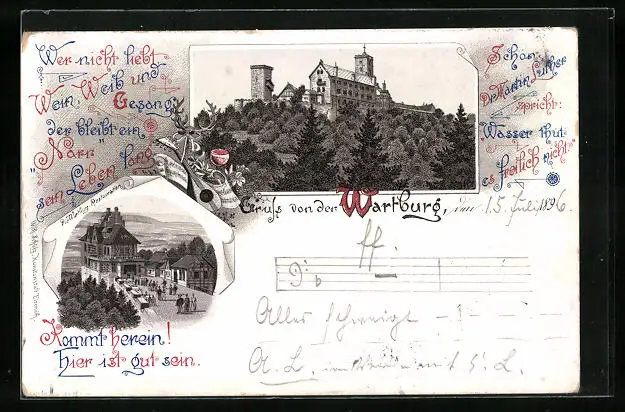 Wer nicht liebt
Wein, Weib und
Gesang,
der bleibt ein
"Narr" sein
Leben lang
Schon
Dr Martin Luther
spricht:
Wasser thut
es freilich nicht"
Restauration
Gruss von der Wartburg, den 15. Juli 1896.
ff.
Alles schweigt
A. L.
Kommt herein!
Hier ist gut sein.